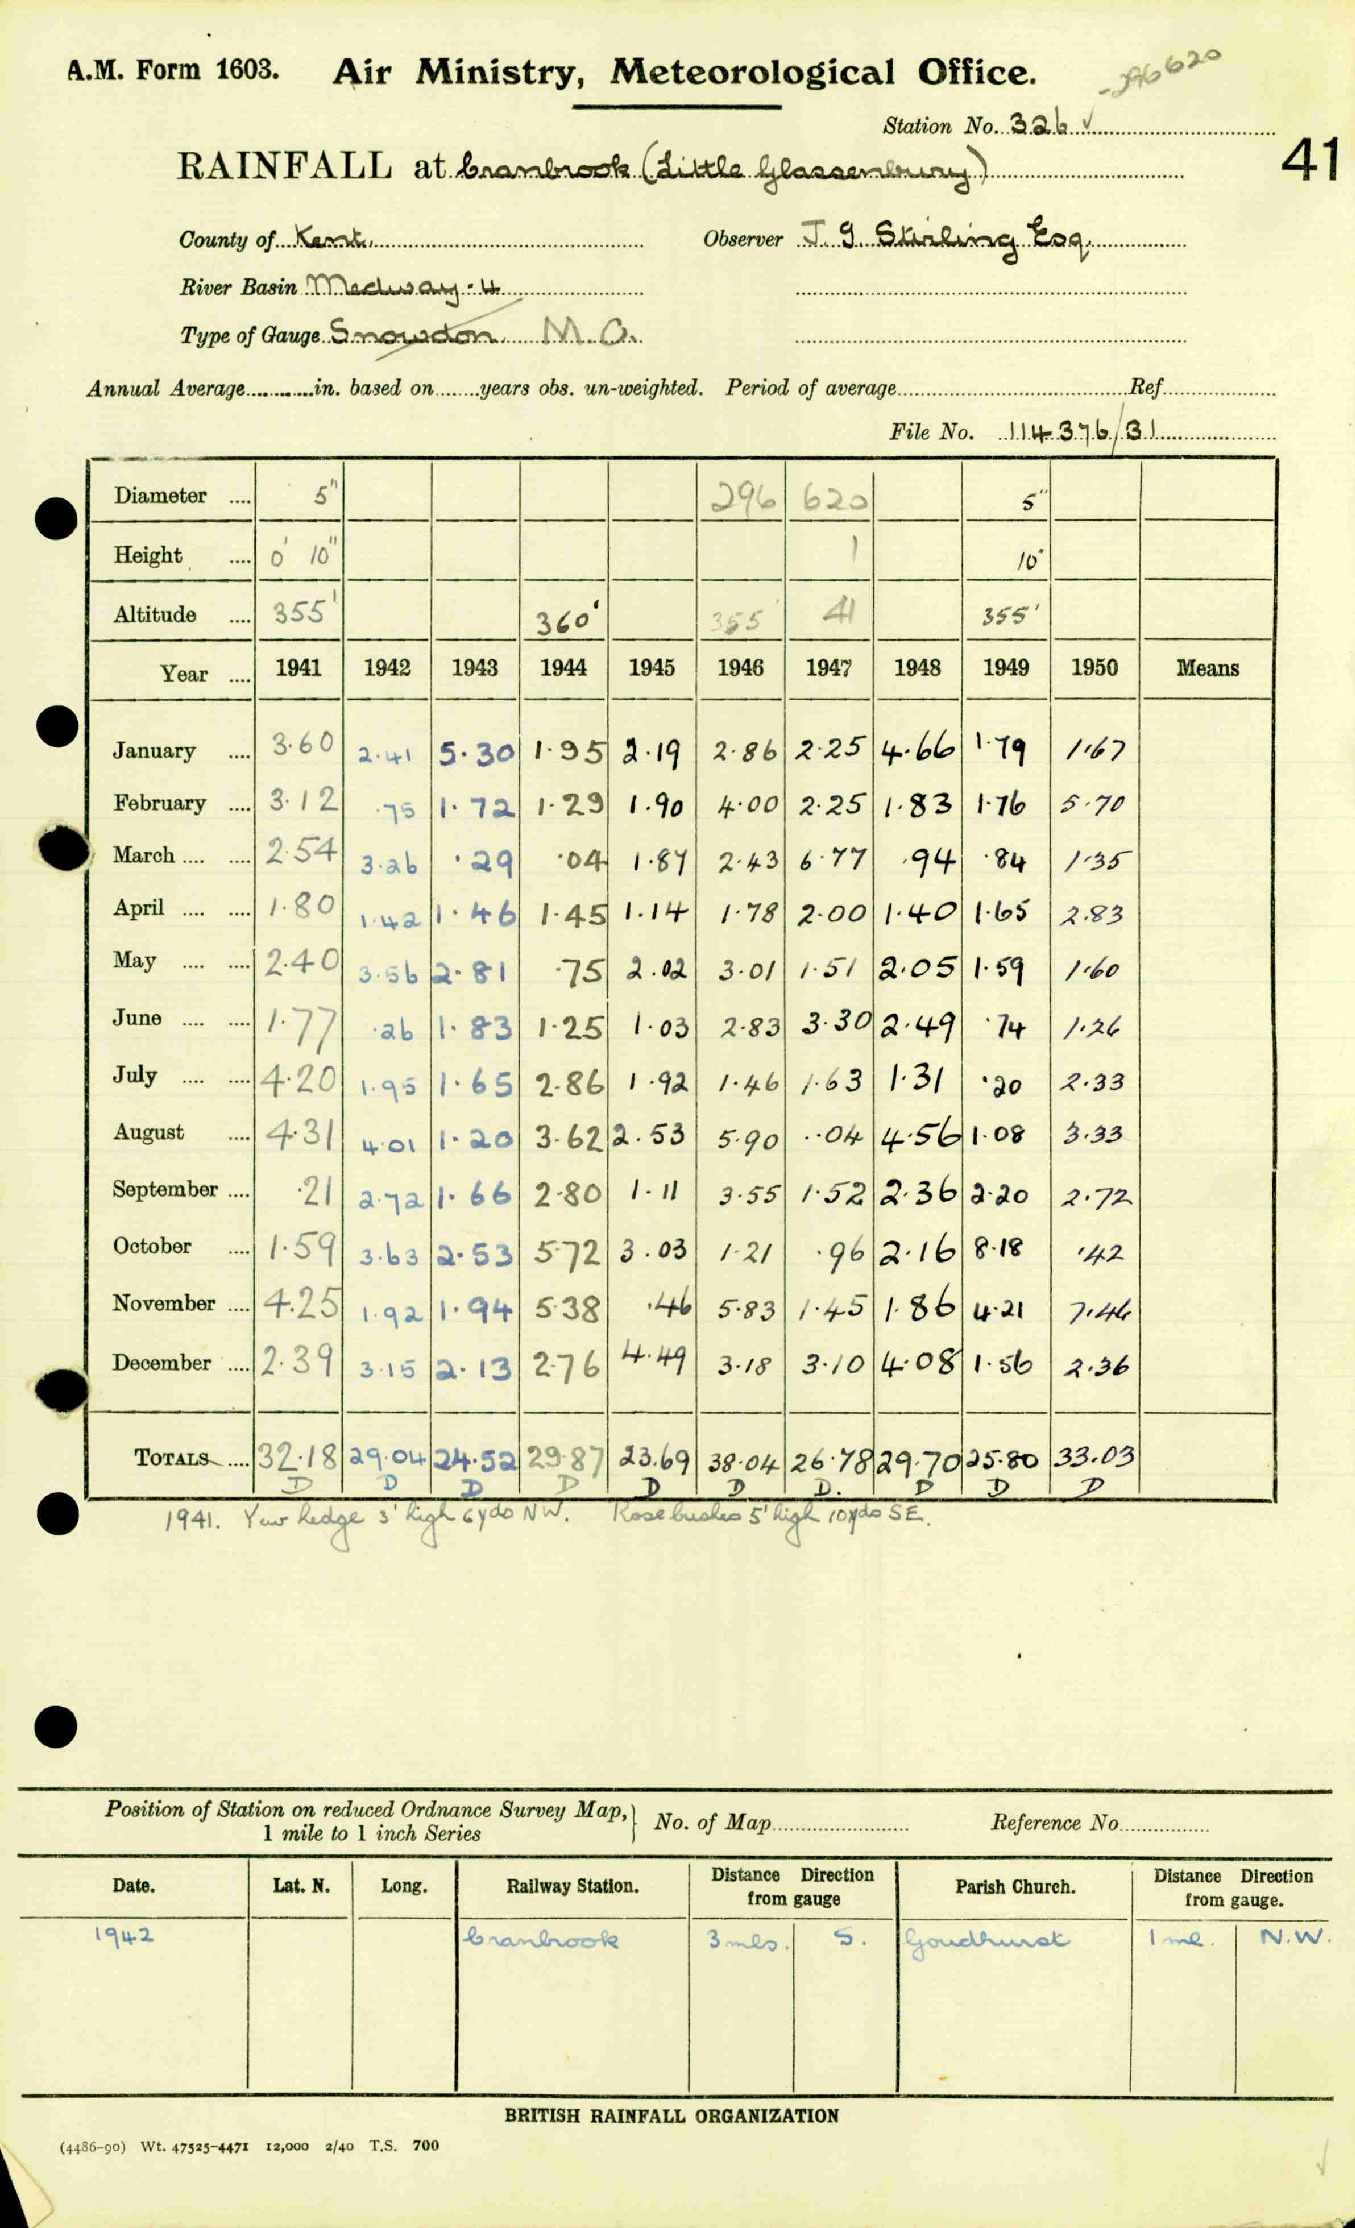 A.M. Form 1603. Air Ministry, Meteorological Office. -296620
Station No. 326 ✓
RAINFALL at Cranbrook (Little Glassenbury) 41
County of Kent. Observer J. G. Stirling Esq.
River Basin Medway. 4
Type of Gauge Snowdon M.O.
Annual Average in. based on years obs. un-weighted. Period of average Ref
File No. 114376/31
Diameter .... 5" 296 620 5"
Height .... 0' 10" 1 10"
Altitude .... 355' 360' 355' 41 355'
Year .... 1941 1942 1943 1944 1945 1946 1947 1948 1949 1950 Means
January .... 3.60 2.41 5.30 1.95 2.19 2.86 2.25 4.66 1.79 1.67
February .... 3.12 .75 1.72 1.29 1.90 4.00 2.25 1.83 1.76 5.70
March .... .... 2.54 3.26 .29 .04 1.87 2.43 6.77 .94 .84 1.35
April .... .... 1.80 1.42 1.46 1.45 1.14 1.78 2.00 1.40 1.65 2.83
May .... .... 2.40 3.56 2.81 .75 2.02 3.01 1.51 2.05 1.59 1.60
June .... .... 1.77 .26 1.83 1.25 1.03 2.83 3.30 2.49 .74 1.26
July .... .... 4.20 1.95 1.65 2.86 1.92 1.46 1.63 1.31 .20 2.33
August .... 4.31 4.01 1.20 3.62 2.53 5.90 .04 4.56 1.08 3.33
September .... .21 2.72 1.66 2.80 1.11 3.55 1.52 2.36 2.20 2.72
October .... 1.59 3.63 2.53 5.72 3.03 1.21 .96 2.16 8.18 .42
November .... 4.25 1.92 1.94 5.38 .46 5.83 1.45 1.86 4.21 7.46
December .... 2.39 3.15 2.13 2.76 4.49 3.18 3.10 4.08 1.56 2.36
TOTALS .... 32.18 29.04 24.52 29.87 23.69 38.04 26.78 29.70 25.80 33.03
D D D D D D D. D D D
1941. Yew hedge 3' high 6yds NW. Rose bushes 5' high 10yds SE.
Position of Station on reduced Ordnance Survey Map, No. of Map Reference No.
1 mile to 1 inch Series
Date. Lat. N. Long. Railway Station. Distance Direction Parish Church. Distance Direction
from gauge from gauge.
1942 Cranbrook 3 mls. S. Goudhurst 1 ml. N.W.
BRITISH RAINFALL ORGANIZATION
(4486-90) Wt. 47525-4471 12,000 2/40 T.S. 700